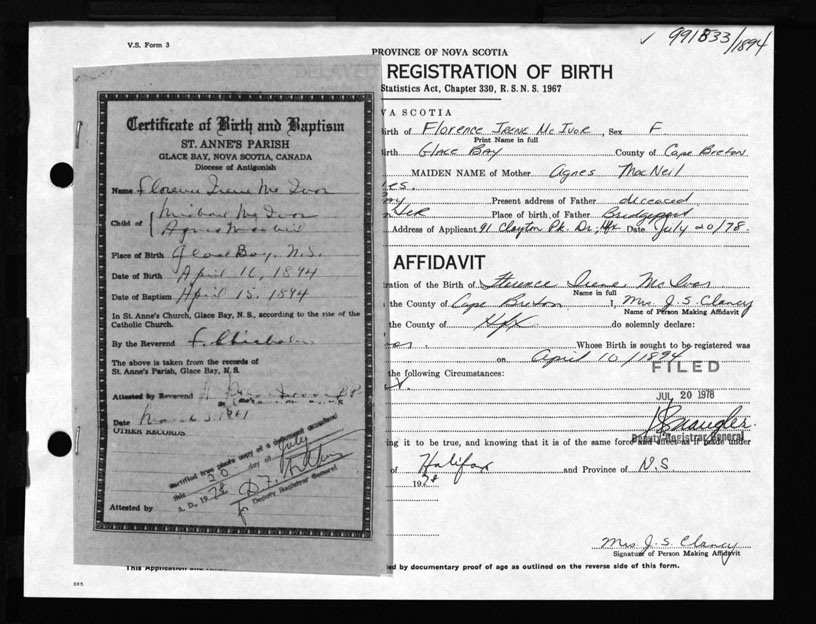 V.S. Form 3
✓ 991833/1894
PROVINCE OF NOVA SCOTIA
REGISTRATION OF BIRTH
Statistics Act, Chapter 330, R.S.N.S. 1967
VA SCOTIA
irth of Florence Irene Mc Ivor, Sex F
Print Name in full
irth Glace Bay County of Cape Breton
MAIDEN NAME of Mother Agnes MacNeil
es.
ay Present address of Father deceased
Place of birth of Father Bridgeport
Address of Applicant 91 Clayton Pk. Dr., Hfx Date July 20/78.
Certificate of Birth and Baptism
ST. ANNE'S PARISH
GLACE BAY, NOVA SCOTIA, CANADA
Diocese of Antigonish
Name Florence Irene Mc Ivor
Child of Michael Mc Ivor
Agnes
Place of Birth Glace Bay, N.S.
Date of Birth April 10, 1894
Date of Baptism April 15, 1894
In St. Anne's Church, Glace Bay, N.S., according to the rite of the
Catholic Church.
By the Reverend F. Chisholm
The above is taken from the records of
St. Anne's Parish, Glace Bay, N.S.
Attested by Reverend P.P.
Date March 1961
OTHER RECORDS
certified true photo copy of a document
this 20 day of July
A.D., 1978
Deputy Registrar General
Attested by
AFFIDAVIT
ration of the Birth of Florence Irene Mc Ivor.
Name in full
the County of Cape Breton I, Mrs. J. S. Clancy
Name of Person Making Affidavit
the County of Hfx. do solemnly declare:
Whose Birth is sought to be registered was
on April 10/1894
FILED
the following Circumstances:
JUL 20 1978
Deputy Registrar General
ing it to be true, and knowing that it is of the same force and effect as if made under
of Halifax and Province of N.S
1978
Mrs J. S. Clancy
Signature of Person Making Affidavit
This Application and
ed by documentary proof of age as outlined on the reverse side of this form.